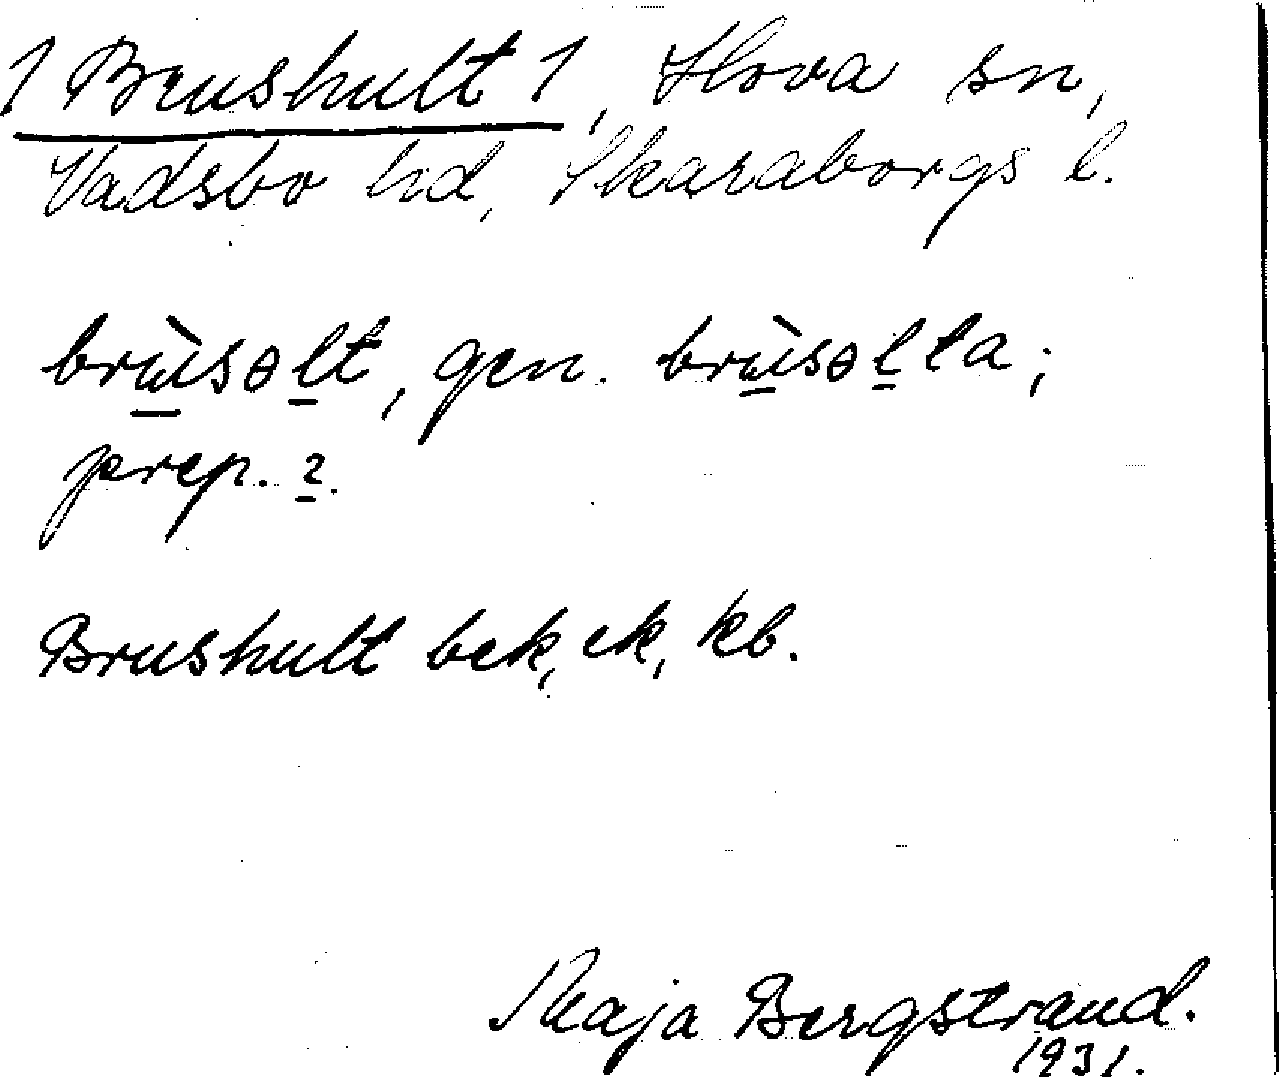 1 Brushult 1, Hova sn,
Vadsbo hd, Skaraborgs l.
brùsəlt, gen. brùsəlta;
prep. 2.
Brushult bek, ek, kb.
Maja Bergstrand.
1931.